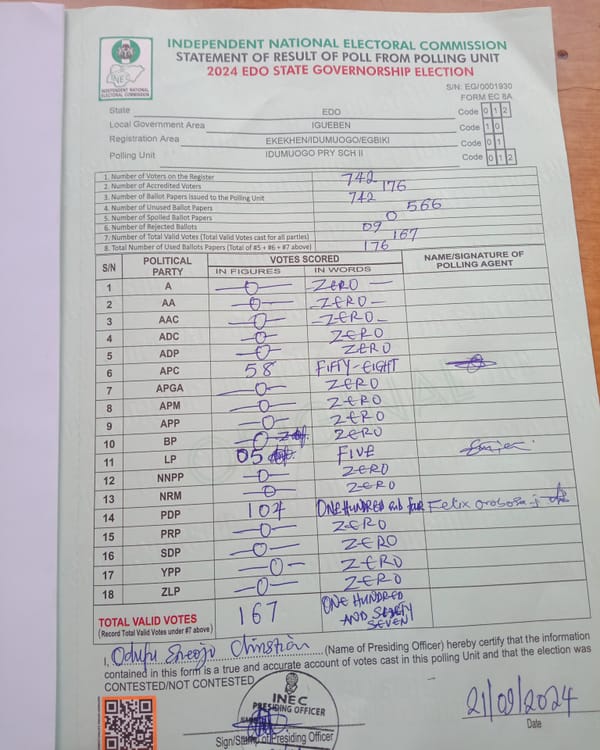 INDEPENDENT NATIONAL ELECTORAL COMMISSION
STATEMENT OF RESULT OF POLL FROM POLLING UNIT
2024 EDO STATE GOVERNORSHIP ELECTION
INEC
INDEPENDENT NATIONAL
ELECTORAL COMMISSION
S/N: EG/0001930
FORM EC 8A
State EDO Code 0 1 2
Local Government Area IGUEBEN Code 1 0
Registration Area EKEKHEN/IDUMUOGO/EGBIKI Code 0 1
Polling Unit IDUMUOGO PRY SCH II Code 0 1 2
1. Number of Voters on the Register 742
2. Number of Accredited Voters 176
3. Number of Ballot Papers Issued to the Polling Unit 742
4. Number of Unused Ballot Papers 566
5. Number of Spoiled Ballot Papers 0
6. Number of Rejected Ballots 09
7. Number of Total Valid Votes (Total Valid Votes cast for all parties) 167
8. Total Number of Used Ballots Papers (Total of #5 + #6 + #7 above) 176
S/N POLITICAL PARTY VOTES SCORED NAME/SIGNATURE OF POLLING AGENT
IN FIGURES IN WORDS
1 A 0 ZERO
2 AA 0 ZERO
3 AAC 0 ZERO
4 ADC 0 ZERO
5 ADP 0 ZERO
6 APC 58 FIFTY-EIGHT
7 APGA 0 ZERO
8 APM 0 ZERO
9 APP 0 ZERO
10 BP 0 ZERO
11 LP 05 FIVE
12 NNPP 0 ZERO
13 NRM 0 ZERO
14 PDP 104 ONE HUNDRED and four Felix
15 PRP 0 ZERO
16 SDP 0 ZERO
17 YPP 0 ZERO
18 ZLP 0 ZERO
TOTAL VALID VOTES 167 ONE HUNDRED AND SIXTY SEVEN
(Record Total Valid Votes under #7 above)
I, Christian (Name of Presiding Officer) hereby certify that the information
contained in this form is a true and accurate account of votes cast in this polling Unit and that the election was
CONTESTED/NOT CONTESTED
INEC
PRESIDING OFFICER
21/09/2024
Sign/Stamp of Presiding Officer Date